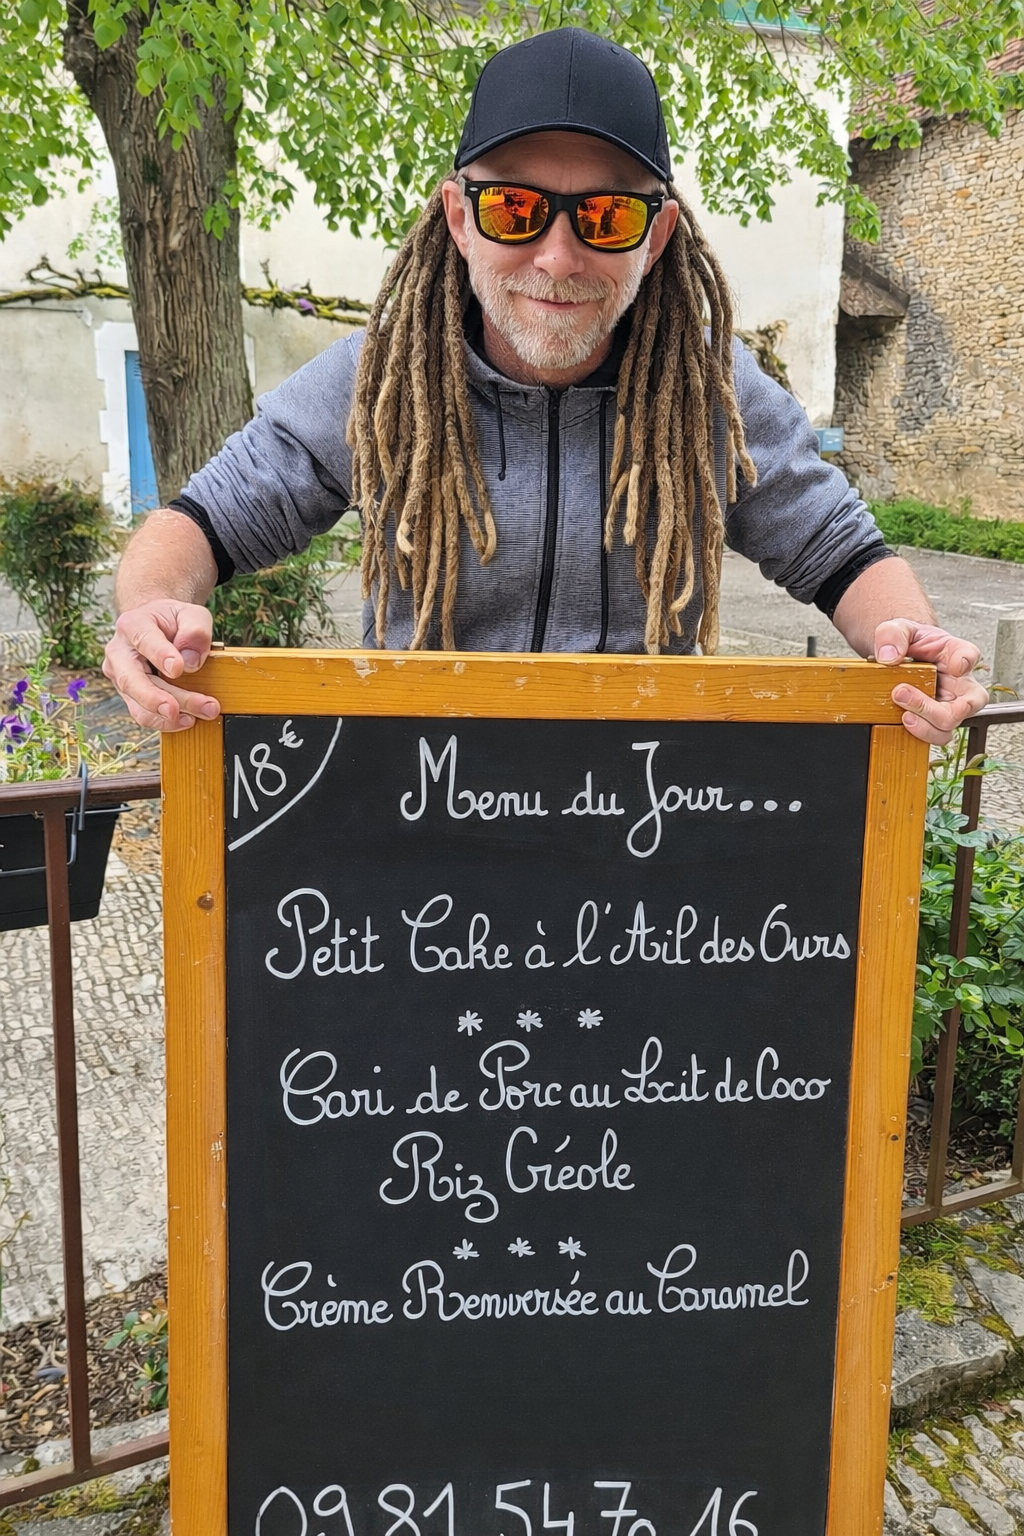 18€
Menu du Jour...
Petit Cake à l'Ail des Ours
* * *
Cari de Porc au Lait de Coco
Riz Créole
* * *
Crème Renversée au Caramel
09 81 54 70 16